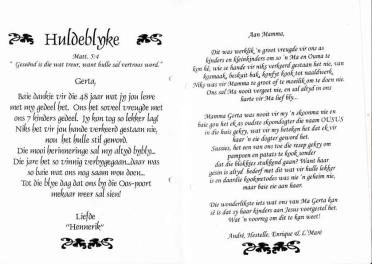 Huldeblyke
Matt. 5:4
"Geseënd is die wat treur, want hulle sal vertroos word."
Gerta,
Baie dankie vir die 48 jaar wat jy jou lewe
met my gedeel het. Ons het soveel vreugde met
ons 7 kinders gedeel. Jy kon tog so lekker lag!
Niks het vir jou hande verkeerd gestaan nie,
non het hulle stil geword.
Die mooi herinneringe sal my altyd bybly...
Die jare het so vinnig verbygegaan...daar was
so baie wat ons nog saam wou doen...
Tot die blye dag dat ons by die Oos-poort
mekaar weer sal sien!
Liefde
"Hennerik"
Aan Mamma,
Dit was werklik 'n groot vreugde vir ons as
kinders en kleinkinders om so 'n Ma en Ouma te
kon hê, wie se hande vir niks verkeerd gestaan het nie, van
kosmaak, beskuit bak, konfyt kook tot naaldwerk,
Niks was vir Mamma te groot of te moeilik om te doen nie.
Ons sal Ma nooit vergeet nie, en sal altyd in ons
harte vir Ma lief bly...
Mamma Gerta was nooit vir my 'n skoonma en
gou het ek as oudste skoondogter die naam OUSUS
in die huis gekry, wat vir my beteken het dat ek vir
haar 'n eie dogter geword het.
Sussies, het een van ons toe die resep gekry om
pampoen en patats te kook sonder
dat die blokkies stukkend gaan? Want haar
gesin is altyd bederf met dit wat vir hulle lekker
is en daardie kookmetodes was nie 'n geheim nie,
maar baie eie aan haar.
Die wonderlikste iets wat ons van Ma Gerta kan
sê is dat sy haar kinders aan Jesus voorgestel het.
Wat 'n voorreg om dit te kan weet!
André, Hestelle, Enrique & L'Maré